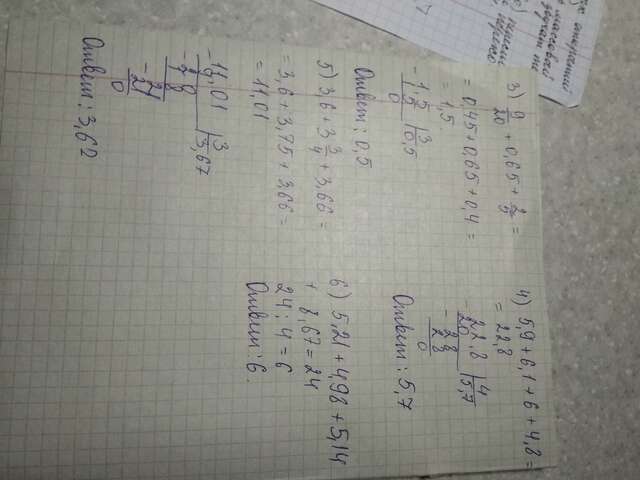 3) 9/20 + 0,65 + 2/5 =
= 0,45 + 0,65 + 0,4 =
= 1,5
- 1,5 | 3
1 5 | 0,5
0
Ответ: 0,5
5) 3,6 + 3 3/4 + 3,66 =
= 3,6 + 3,75 + 3,66 =
= 11,01
- 11,01 | 3
9 | 3,67
- 20
18
- 21
21
0
Ответ: 3,62
4) 5,9 + 6,1 + 6 + 4,8 =
= 22,8
- 22,8 | 4
20 | 5,7
- 28
28
0
Ответ: 5,7
6) 5,21 + 4,98 + 5,14
+ 8,67 = 24
24 : 4 = 6
Ответ: 6.